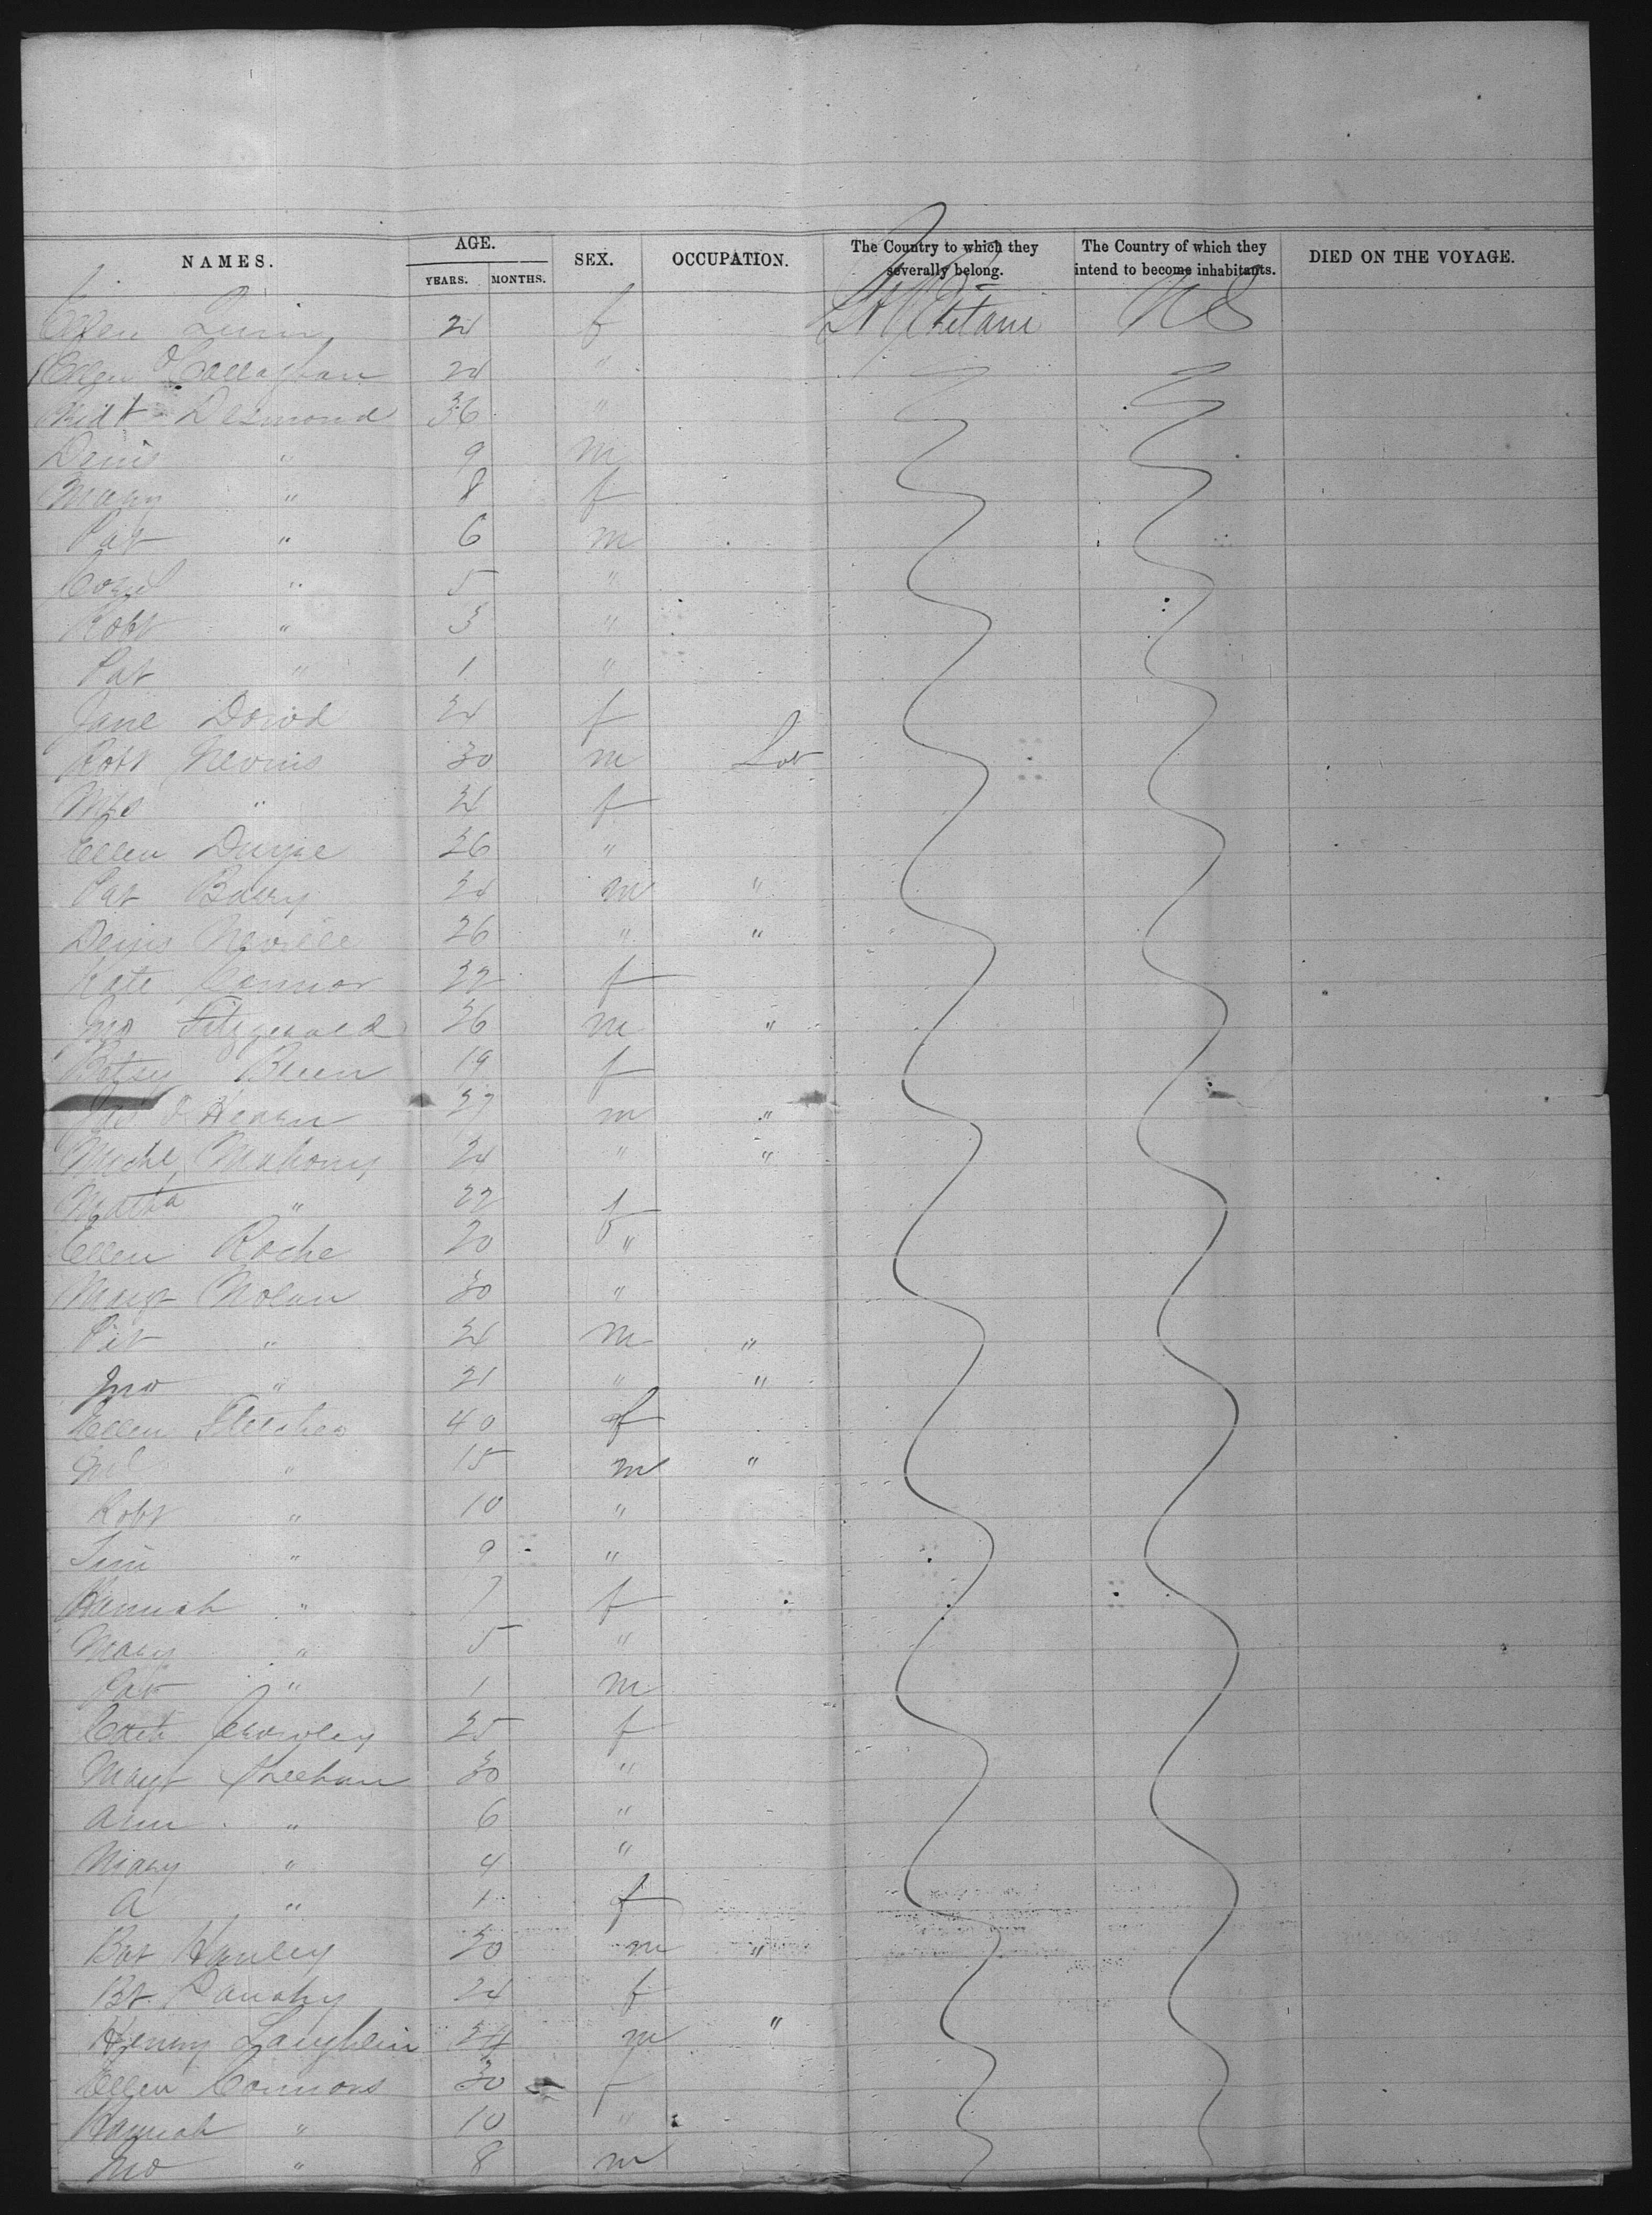 NAMES. AGE. YEARS. MONTHS. SEX. OCCUPATION. The Country to which they severally belong. The Country of which they intend to become inhabitants. DIED ON THE VOYAGE.
Ellen Quin 24 f Gt Britain US
Ellen O'Callaghan 24 "
Desmond 36 "
Denis " 9 m
Mary " 8 f
Pat " 6 m
" 5 "
Robt " 3 "
Pat " 1 "
Jane Dowd 24 f
Robt Nevins 30 m Lab
Mrs " 24 f
Ellen 26 "
Pat Barry 24 m "
Denis Neville 26 " "
Kate Connor 22 f
Jno Fitzgerald 26 m "
Betsy Breen 19 f
Jas O'Hearn 27 m "
Michl Mahony 24 " "
" 22 f
Ellen Roche 20 "
Margt Nolan 30 "
Pat " 24 m "
Jno " 21 " "
Ellen 40 f
" 15 m "
Robt " 10 "
Tim " 9 "
Hannah " 7 f
Mary " 5 "
Pat " 1 m
Cath Crowley 25 f
Margt Sheehan 30 "
Ann " 6 "
Mary " 4 "
A " 1 f
Bat Hanley 30 m "
Bt 24 f
Henry Laughlin 34 m "
Ellen Connors 30 f
Hannah " 10 "
Jno " 8 m